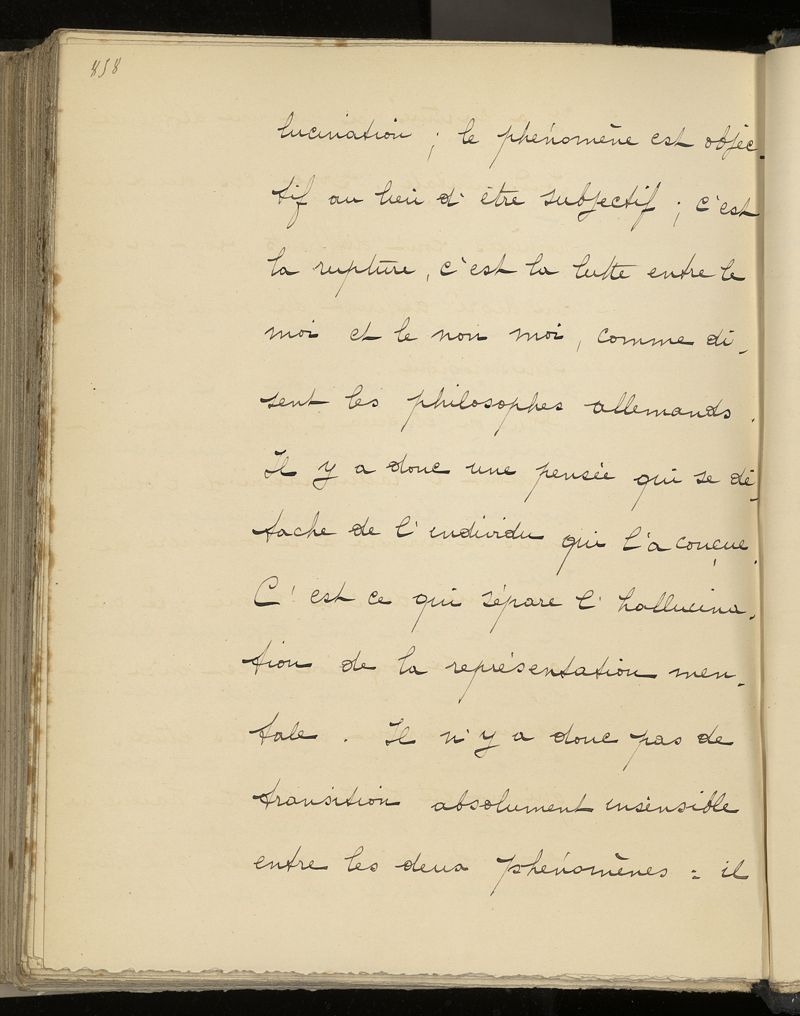 458
lucination ; le phénomène est objec-
tif au lieu d'être subjectif ; c'est
la rupture, c'est la lutte entre le
moi et le non moi, comme di-
sent les philosophes allemands.
Il y a donc une pensée qui se dé-
tache de l'individu qui l'a conçue.
C'est ce qui sépare l'hallucina-
tion de la représentation men-
tale. Il n'y a donc pas de
transition absolument insensible
entre les deux phénomènes : il